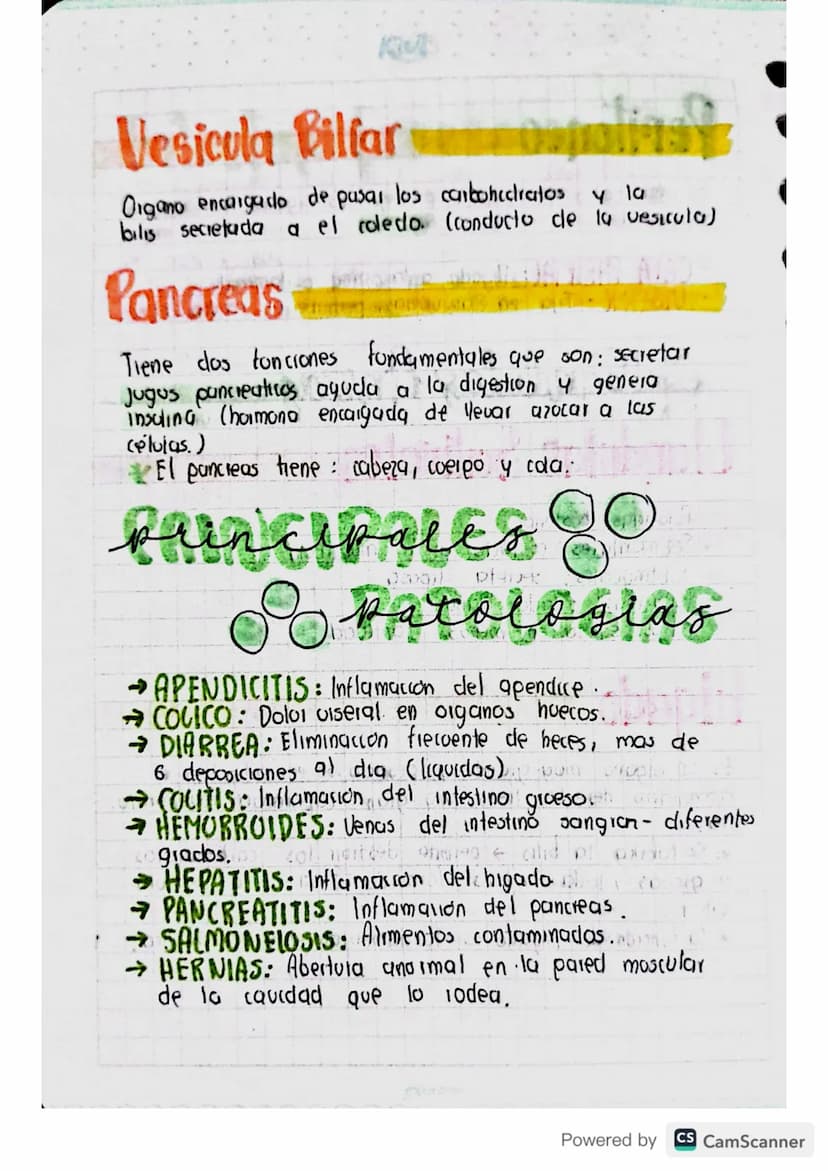 Vesicula Biliar
Organo encargado de pasar los carbohidratos y la
bilis secretada a el coledo. (conducto de la vesicula)
Pancreas
Tiene dos funciones fundamentales que son: secretar
jugos pancreaticos ayuda a la digestion y genera
insulina (hormona encargada de llevar azocar a las
células.)
El pancreas tiene: cabeza, cuerpo y cola.
PRINCIPALES
PATOLOGIAS
→ APENDICITIS: Inflamación del apendice.
→ COLICO: Dolor viseral en organos huecos.
→ DIARREA: Eliminación frecuente de heces, mas de
6 deposiciones al dia (liquidas)
→ COLITIS: Inflamación del intestino grueso.
→ HEMORROIDES: Venas del intestino sangran - diferentes
grados.
→ HEPATITIS: Inflamación del higado
→ PANCREATITIS: Inflamación del pancreas.
→ SALMONELOSIS: Alimentos contaminados.
→ HERNIAS: Abertura anormal en la pared muscular
de la cavidad que lo rodea.
Powered by CS CamScanner